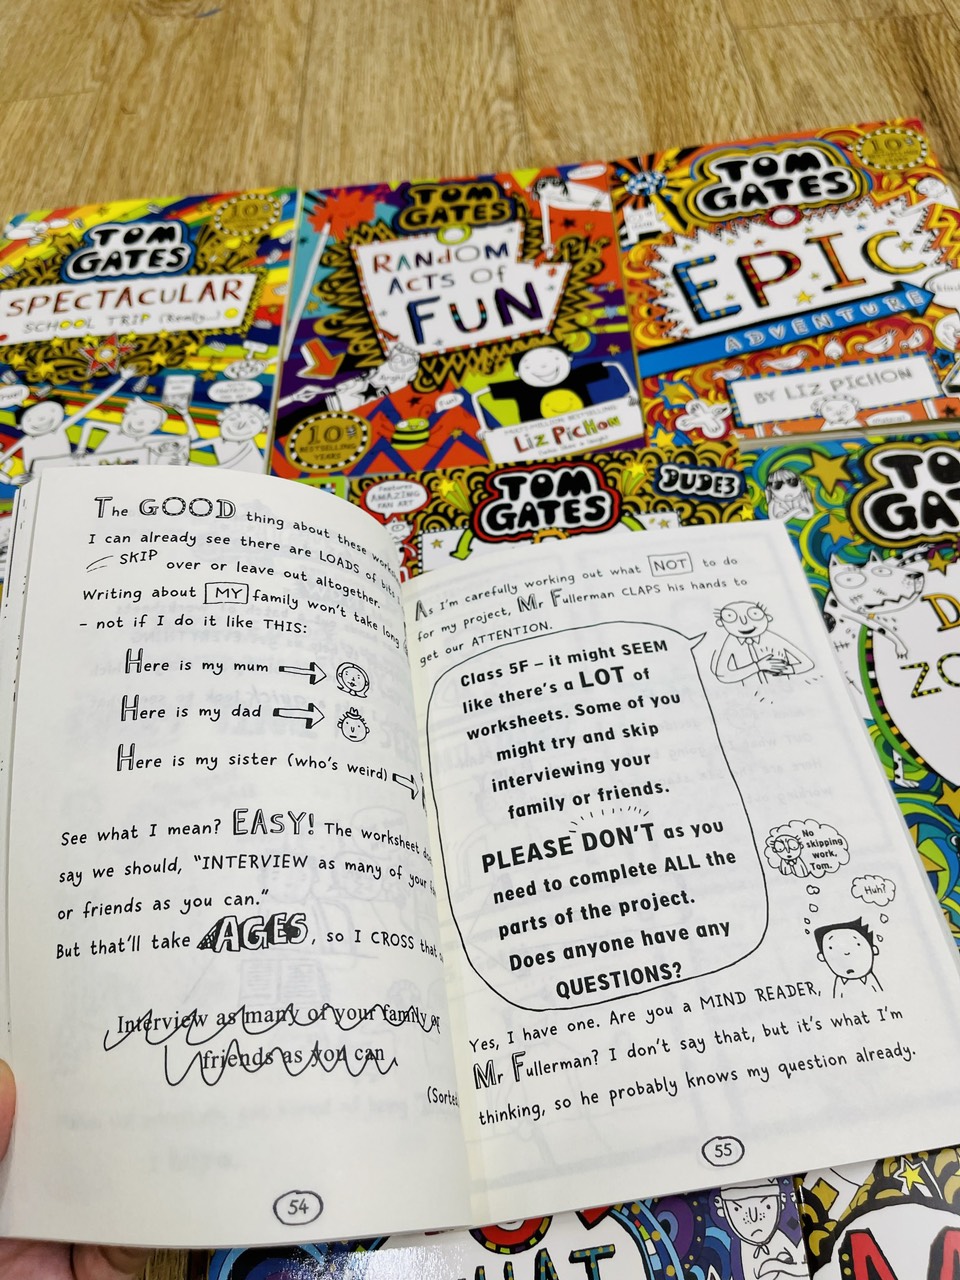 TOM
GATES
10
SPECTACULAR
SCHOOL TRIP (Really...)
TOM
GATES
RANdOM
ACTS of
FUN
Fun!
10
BESTSELLING
YEARS
LIZ PICHON
TOM
GATES
10
EPIC
ADVENTURE
BY LIZ PICHON
Features
AMAZING
FAN ART
TOM
GATES
DUDE3
TOM
GATES
The GOOD thing about these
I can already see there are LOADS of bits
SKIP over or leave out altogether.
Writing about MY family won't take long
– not if I do it like THIS:
Here is my mum
Here is my dad
Here is my sister (who's weird)
See what I mean? EASY! The worksheet
say we should, "INTERVIEW as many of your
or friends as you can."
But that'll take AGES, so I CROSS that
Interview as many of your family or
friends as you can
(Sorted
54
As I'm carefully working out what NOT to do
for my project, Mr Fullerman CLAPS his hands to
get our ATTENTION.
Class 5F – it might SEEM
like there's a LOT of
worksheets. Some of you
might try and skip
interviewing your
family or friends.
PLEASE DON'T as you
need to complete ALL the
parts of the project.
Does anyone have any
QUESTIONS?
No
skipping
work,
Tom.
Huh?
Yes, I have one. Are you a MIND READER,
Mr Fullerman? I don't say that, but it's what I'm
thinking, so he probably knows my question already.
55